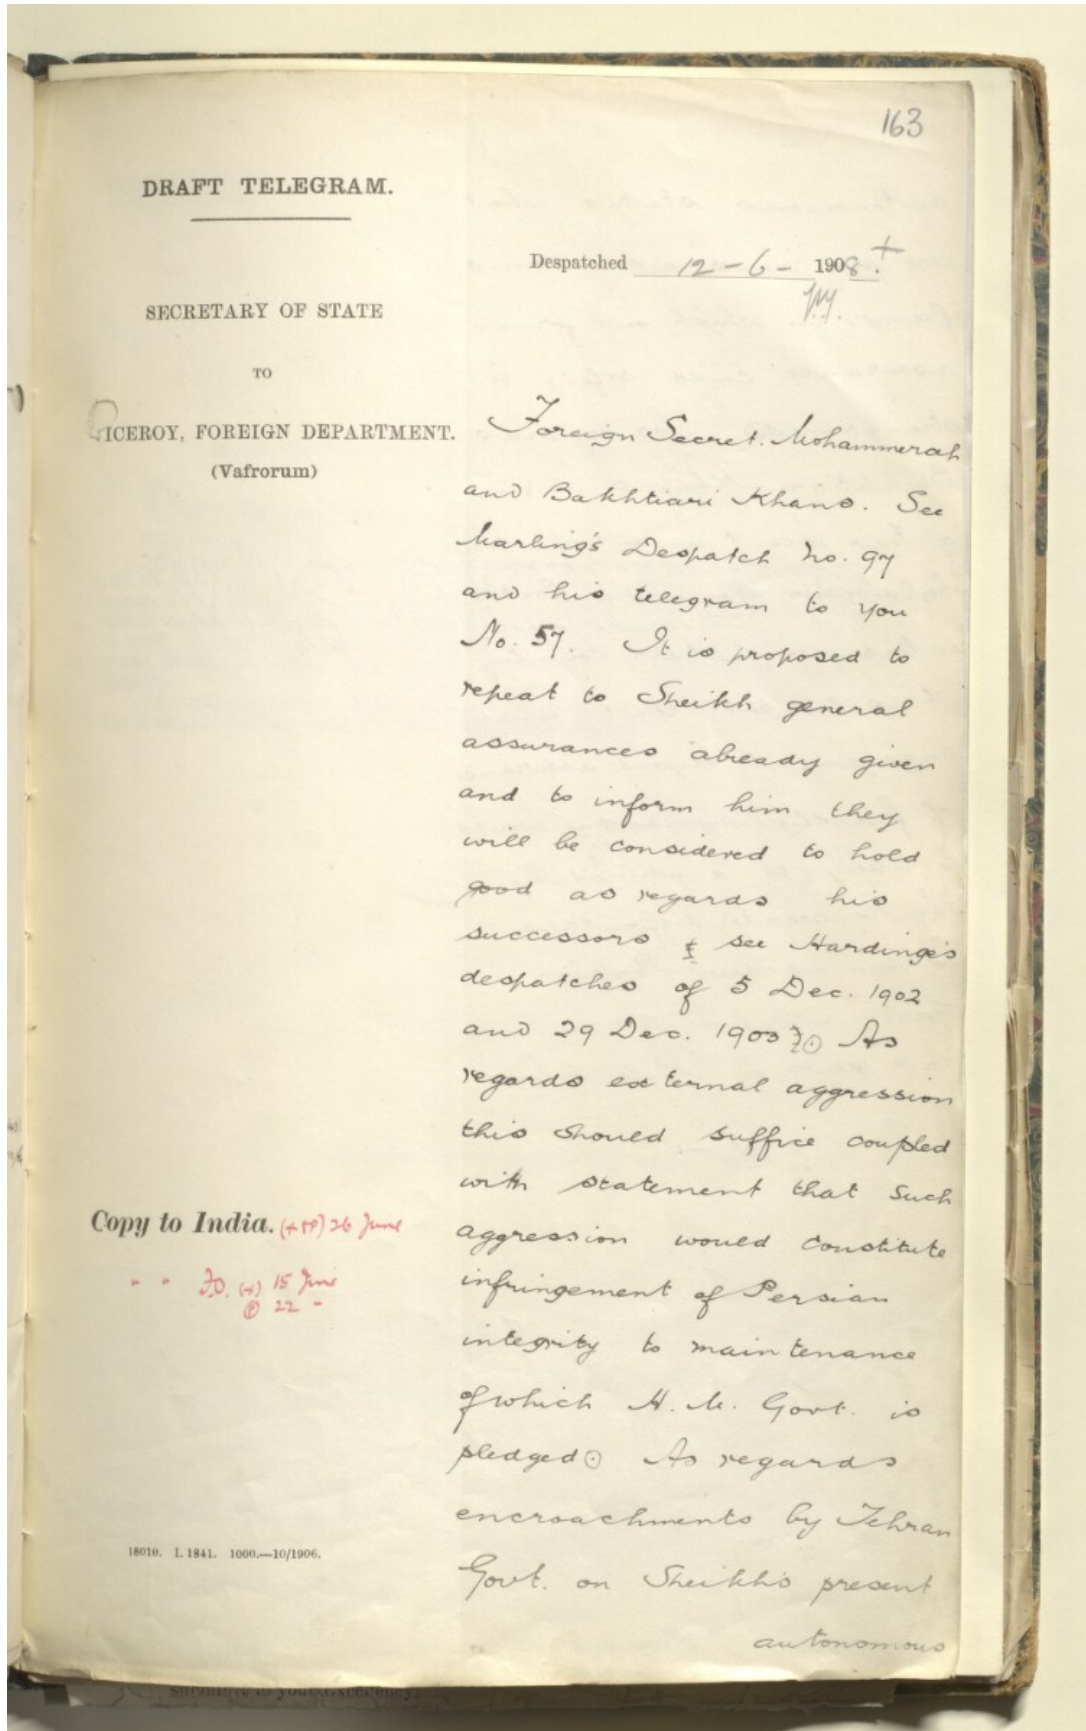 163
DRAFT TELEGRAM.
Despatched 12-6- 1908. +
SECRETARY OF STATE
TO
VICEROY, FOREIGN DEPARTMENT.
(Vafrorum)
Foreign Secret. Mohammerah
and Bakhtiari Khans. See
Marling's Despatch No. 97
and his telegram to you
No. 57. It is proposed to
repeat to Sheikh general
assurances already given
and to inform him they
will be considered to hold
good as regards his
successors & see Hardinge's
despatches of 5 Dec. 1902
and 29 Dec. 1903 ⊙ As
regards external aggression
this should suffice coupled
with statement that such
aggression would constitute
infringement of Persian
integrity to maintenance
of which H. M. Govt. is
pledged ⊙ As regards
encroachments by Tehran
Govt. on Sheikh's present
autonomous
Copy to India. 26 June
" " F.O. (+) 15 June
Ⓟ 22 "
18010. I. 1841. 1000.—10/1906.
submitted to your Excellency